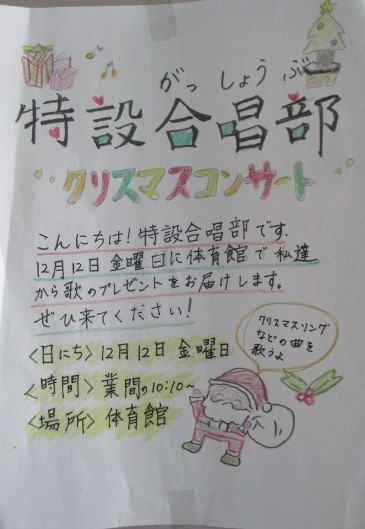 がっしょうぶ
特設合唱部
クリスマスコンサート
こんにちは!特設合唱部です.
12月12日 金曜日に体育館で私達
から歌のプレゼントをお届けします。
ぜひ来てください!
<日にち>12月12日 金曜日
<時間>業間の10:10~
<場所>体育館
クリスマスソング
などの曲を
歌うよ